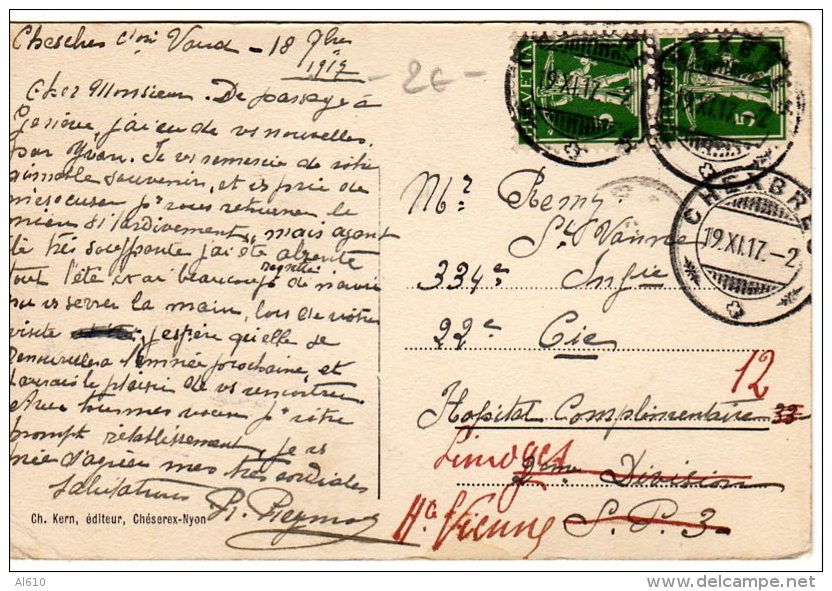 Chesches s/ Vaud - 18 9bre
1917
- 2€ -
Cher Monsieur. De passage à
Genève, j'ai eu de vs nouvelles,
par Yvan. Je vs remercie de votre
aimable souvenir, et vs prie de
m'excuser pr vous retourner le
mien si tardivement, mais ayant
été très souffrante j'ai été absente
tout l'été et ai beaucoup regretté de n'avoir
pu vs serrer la main, lors de votre
visite j'espère qu'elle se
renouvellera l'année prochaine, et
j'aurais le plaisir de vs rencontrer
Avec bonnes vœux pr votre
prompt rétablissement, je vs
prie d'agréer mes très cordiales
salutations
Ch. Kern, éditeur, Chéserex-Nyon
HELVETIA
5
HELVETIA
5
CHEXBRES
19.XI.17.-2
CHEXBRES
19.XI.17.-2
CHEXBRES
19.XI.17.-2
Mr Remy
St Vanne
334e Ingie
22e Cie
12
Hopital Complimentaire 33
Limoges
2me Division
Hte Vienne S. P. 3
Al610
delcampe.net